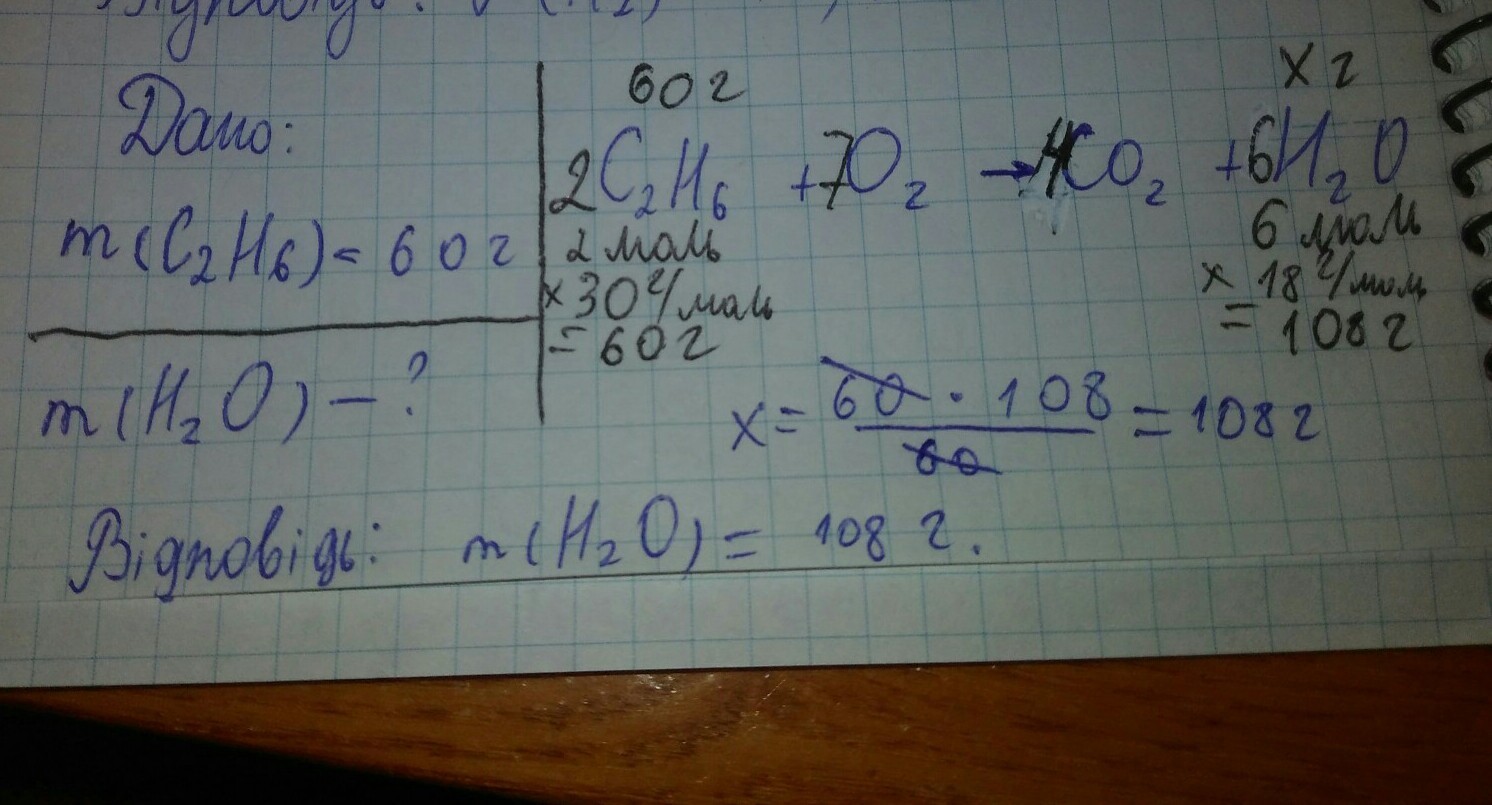 Дано:
m(C₂H₆)= 60 г
m(H₂O) – ?
60 г
x г
2C₂H₆ +7O₂ → 4CO₂ +6H₂O
2 моль
6 моль
x 30 г/моль
x 18 г/моль
= 60 г
= 108 г
x = 60 · 108 / 60 = 108 г
Відповідь: m(H₂O) = 108 г.